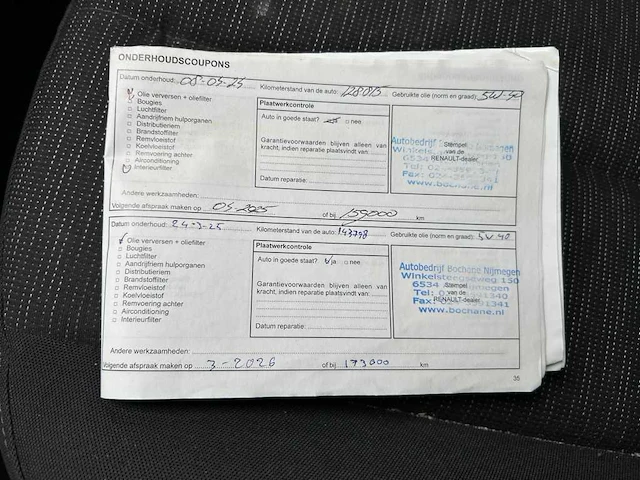 ONDERHOUDSCOUPONS
Datum onderhoud: 08-05-25 Kilometerstand van de auto: 128015 Gebruikte olie (norm en graad): 5W-40
Olie verversen + oliefilter
Bougies
Luchtfilter
Aandrijfriem hulporganen
Distributieriem
Brandstoffilter
Remvloeistof
Koelvloeistof
Remvoering achter
Airconditioning
Interieurfilter
Plaatwerkcontrole
Auto in goede staat? nee
Garantievoorwaarden blijven alleen van
kracht, indien reparatie plaatsvindt van:
Datum reparatie:
Stempel
van de
RENAULT-dealer
Autobedrijf Nijmegen
www.bochane.nl
Andere werkzaamheden:
Volgende afspraak maken op 05-2025 of bij 159000 km
Datum onderhoud: 24-3-25 Kilometerstand van de auto: 143798 Gebruikte olie (norm en graad): 5W-40
Olie verversen + oliefilter
Bougies
Luchtfilter
Aandrijfriem hulporganen
Distributieriem
Brandstoffilter
Remvloeistof
Koelvloeistof
Remvoering achter
Airconditioning
Interieurfilter
Plaatwerkcontrole
Auto in goede staat? ja nee
Garantievoorwaarden blijven alleen van
kracht, indien reparatie plaatsvindt van:
Datum reparatie:
Autobedrijf Bochane Nijmegen
Winkelsteegseweg 150
6534 Nijmegen
Stempel
van de
RENAULT-dealer
www.bochane.nl
Andere werkzaamheden:
Volgende afspraak maken op 3-2026 of bij 173000 km
35